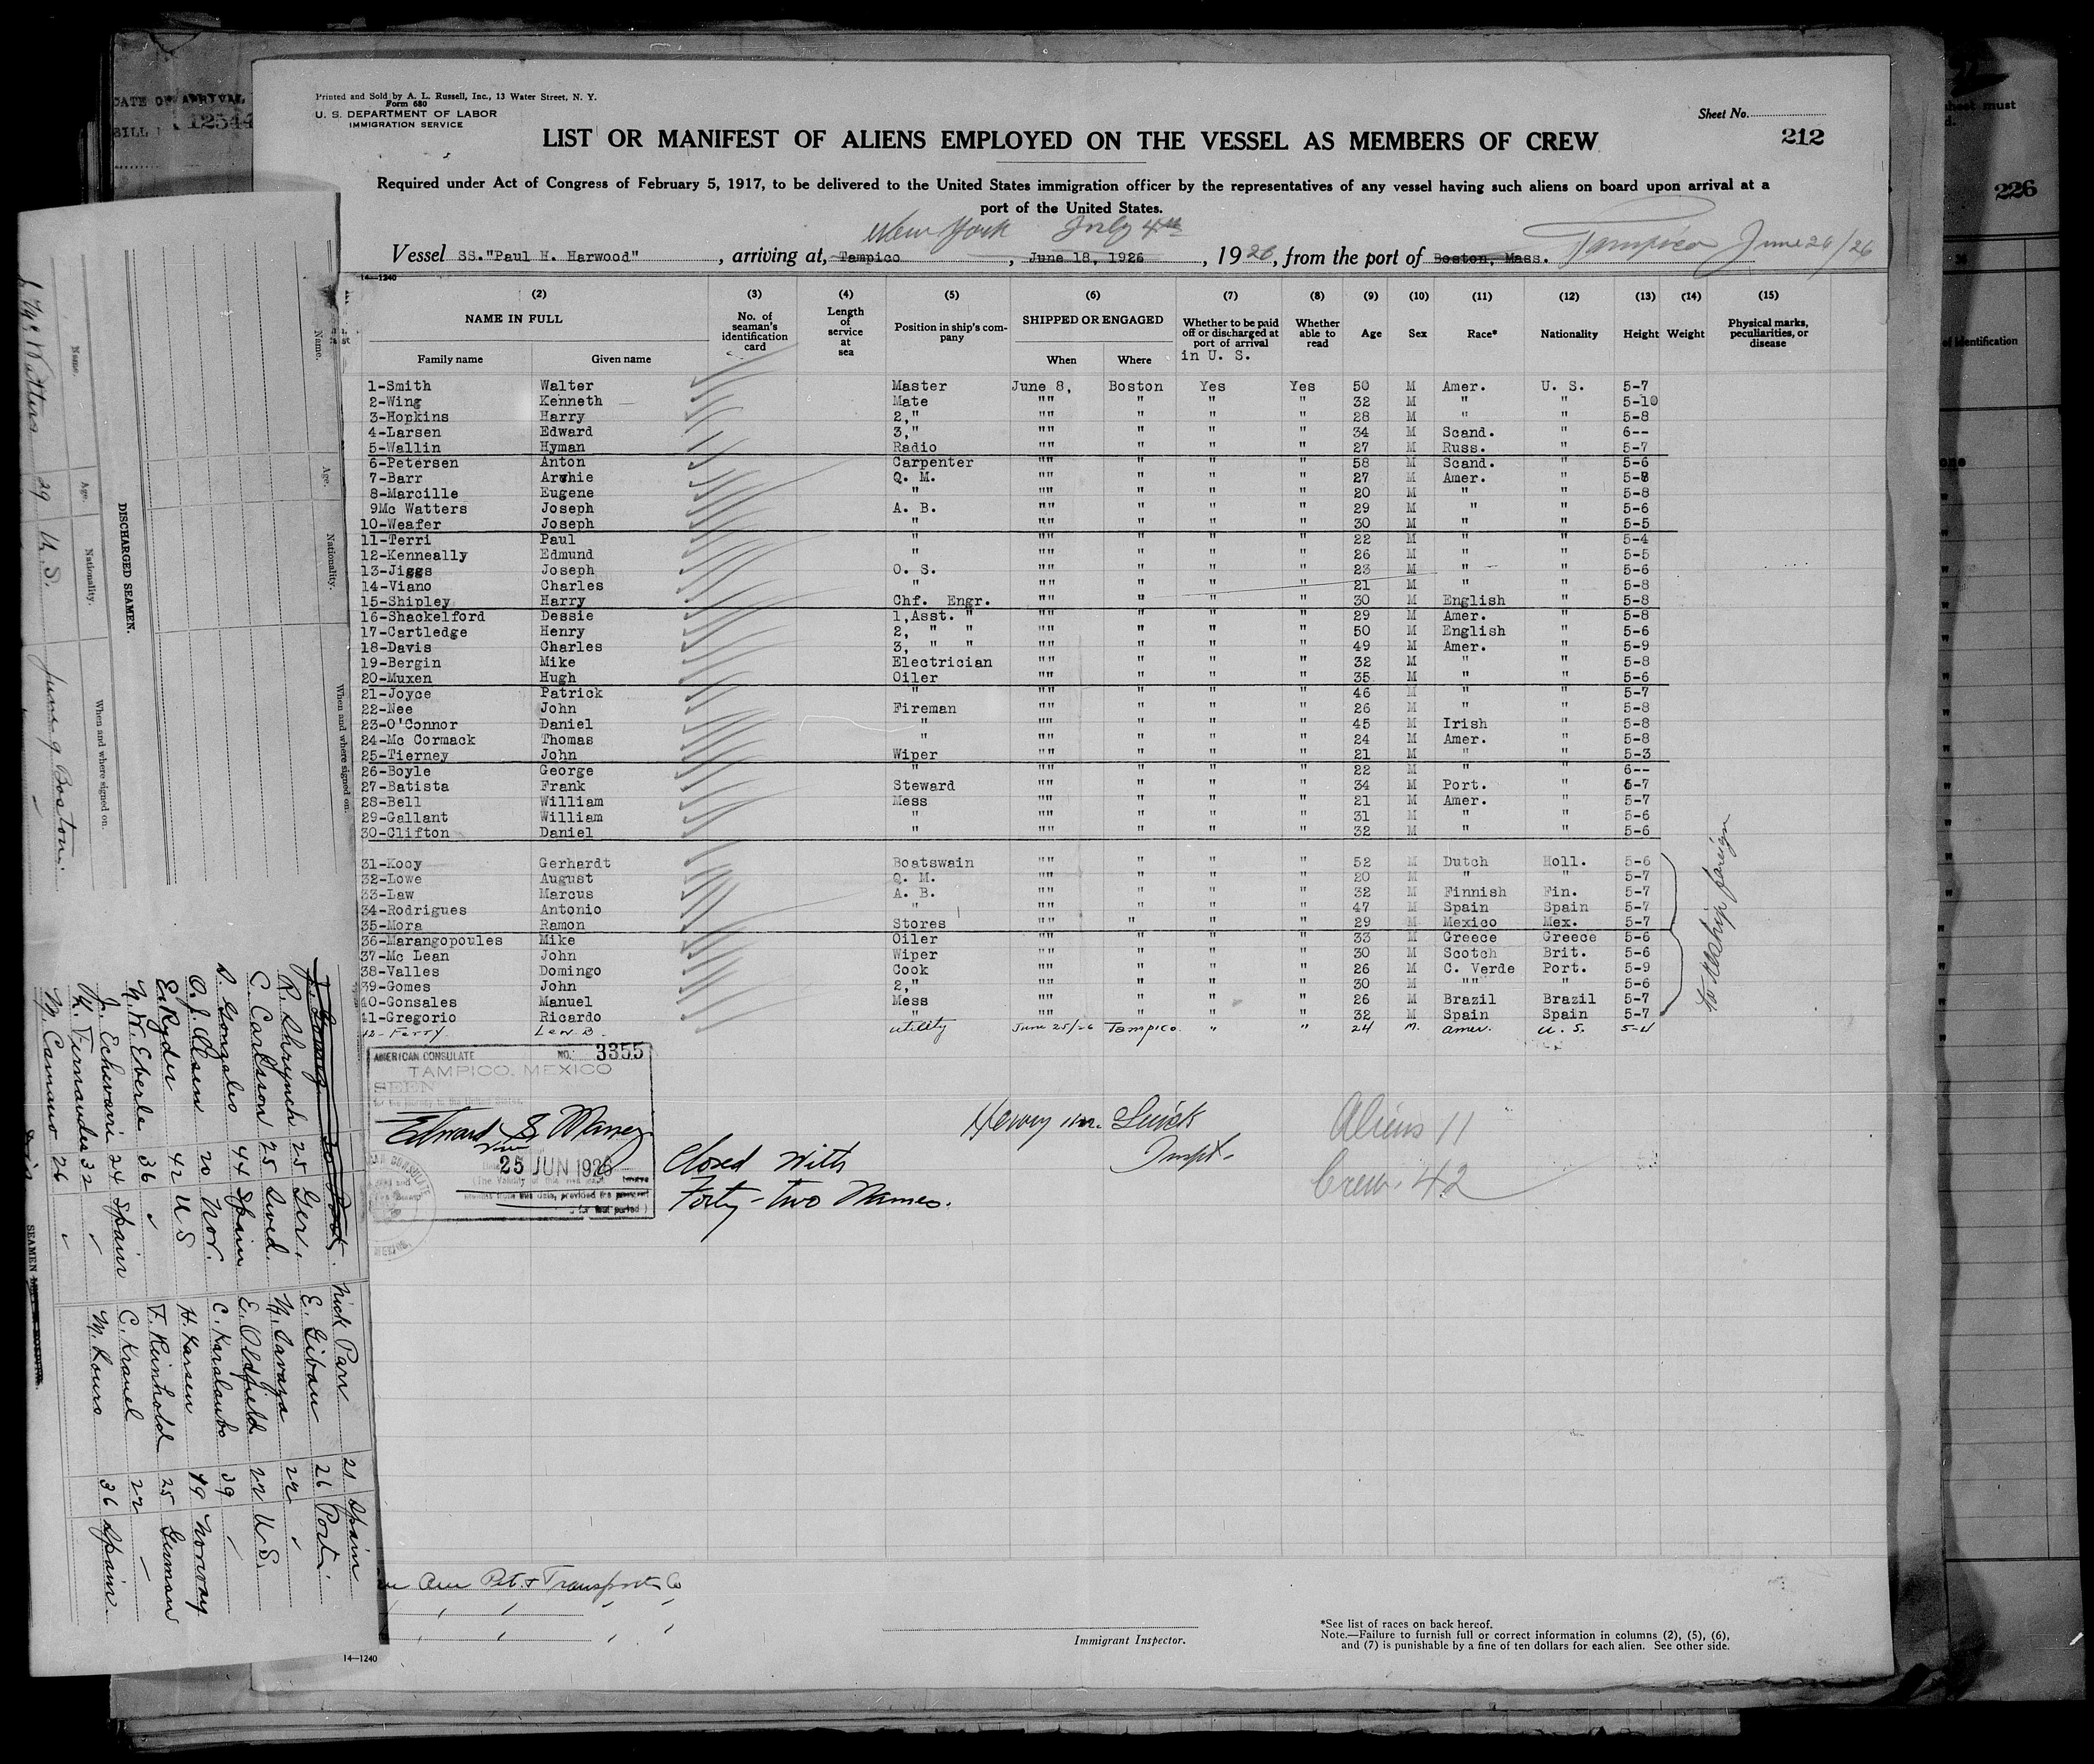 Printed and Sold by A. L. Russell, Inc., 13 Water Street, N. Y.
Form 680
U. S. DEPARTMENT OF LABOR
IMMIGRATION SERVICE
Sheet No.
LIST OR MANIFEST OF ALIENS EMPLOYED ON THE VESSEL AS MEMBERS OF CREW
212
Required under Act of Congress of February 5, 1917, to be delivered to the United States immigration officer by the representatives of any vessel having such aliens on board upon arrival at a
port of the United States.
New York July 4th
Vessel SS."Paul H. Harwood", arriving at, Tampico, June 18, 1926, 1926, from the port of Boston, Mass. Tampico June 26/26
14—1240
(2) (3) (4) (5) (6) (7) (8) (9) (10) (11) (12) (13) (14) (15)
NAME IN FULL No. of seaman's identification card Length of service at sea Position in ship's company SHIPPED OR ENGAGED Whether to be paid off or discharged at port of arrival in U. S. Whether able to read Age Sex Race* Nationality Height Weight Physical marks, peculiarities, or disease
Family name Given name When Where
1-Smith Walter Master June 8, Boston Yes Yes 50 M Amer. U. S. 5-7
2-Wing Kenneth Mate "" " " " 32 M " " 5-10
3-Hopkins Harry 2," "" " " " 28 M " " 5-8
4-Larsen Edward 3," "" " " " 34 M Scand. " 6--
5-Wallin Hyman Radio "" " " " 27 M Russ. " 5-7
6-Petersen Anton Carpenter "" " " " 58 M Scand. " 5-6
7-Barr Archie Q. M. "" " " " 27 M Amer. " 5-8
8-Marcille Eugene " "" " " " 20 M " " 5-8
9Mc Watters Joseph A. B. "" " " " 29 M " " 5-6
10-Weafer Joseph " "" " " " 30 M " " 5-5
11-Terri Paul " "" " " " 22 M " " 5-4
12-Kenneally Edmund " "" " " " 26 M " " 5-5
13-Jiggs Joseph O. S. "" " " " 23 M " " 5-6
14-Viano Charles " "" " " " 21 M " " 5-8
15-Shipley Harry Chf. Engr. "" " " " 30 M English " 5-8
16-Shackelford Dessie 1,Asst. " "" " " " 29 M Amer. " 5-8
17-Cartledge Henry 2, " " "" " " " 50 M English " 5-6
18-Davis Charles 3, " " "" " " " 49 M Amer. " 5-9
19-Bergin Mike Electrician "" " " " 32 M " " 5-8
20-Muxen Hugh Oiler "" " " " 35 M " " 5-6
21-Joyce Patrick " "" " " " 46 M " " 5-7
22-Nee John Fireman "" " " " 26 M " " 5-8
23-O'Connor Daniel " "" " " " 45 M Irish " 5-8
24-Mc Cormack Thomas " "" " " " 24 M Amer. " 5-8
25-Tierney John Wiper "" " " " 21 M " " 5-3
26-Boyle George " "" " " " 22 M " " 6--
27-Batista Frank Steward "" " " " 34 M Port. " 5-7
28-Bell William Mess "" " " " 21 M Amer. " 5-7
29-Gallant William " "" " " " 31 M " " 5-6
30-Clifton Daniel " "" " " " 32 M " " 5-6
31-Kooy Gerhardt Boatswain "" " " " 52 M Dutch Holl. 5-6
32-Lowe August Q. M. "" " " " 20 M " " 5-7
33-Law Marcus A. B. "" " " " 32 M Finnish Fin. 5-7
34-Rodrigues Antonio " "" " " " 47 M Spain Spain 5-7
35-Mora Ramon Stores "" " " " 29 M Mexico Mex. 5-7
36-Marangopoules Mike Oiler "" " " " 33 M Greece Greece 5-6
37-Mc Lean John Wiper "" " " " 30 M Scotch Brit. 5-6
38-Valles Domingo Cook "" " " " 26 M C. Verde Port. 5-9
39-Gomes John 2," "" " " " 30 M "" " 5-6
40-Gonsales Manuel Mess "" " " " 26 M Brazil Brazil 5-7
41-Gregorio Ricardo " "" " " " 32 M Spain Spain 5-7
42-Ferry Leo B. utility June 25/26 Tampico " " 24 M. amer. U. S. 5-4
to reship foreign
AMERICAN CONSULATE NO. 3355
TAMPICO, MEXICO
SEEN
25 JUN 1926
Closed With
Forty-two Names.
Henry M.
Inspt.
Aliens 11
Crew. 42
Am Pet. & Transport Co
Immigrant Inspector.
*See list of races on back hereof.
Note.—Failure to furnish full or correct information in columns (2), (5), (6),
and (7) is punishable by a fine of ten dollars for each alien. See other side.
14—1240
DATE OF ARRIVAL
12544
226
sheet must
of identification
Name. Age. Nationality. When and where signed on.
DISCHARGED SEAMEN.
Name. Age. Nationality. When and where signed on.
29 U.S. June 9 Boston
R. Shrynch 25 Ger.
C. Carlson 25 Swed.
S. Gonzales 44 Spain
O. J. Olsen 20 Nor.
E. Ryder 42 U S
N. W. Eberle 36
J. Echevarri 24 Spain
M. Fernandez 32
M. Camano 26
SEAMEN
Nick Parr 21 Spain
E. Giban 26 Port.
M. Savaya 22
E. Oldfield 22 U S.
C. Karalambo 39
H. Larsen 19 Norway
F. Reinhold 25 German
C. Kranel 22
M. Louro 36 Spain.